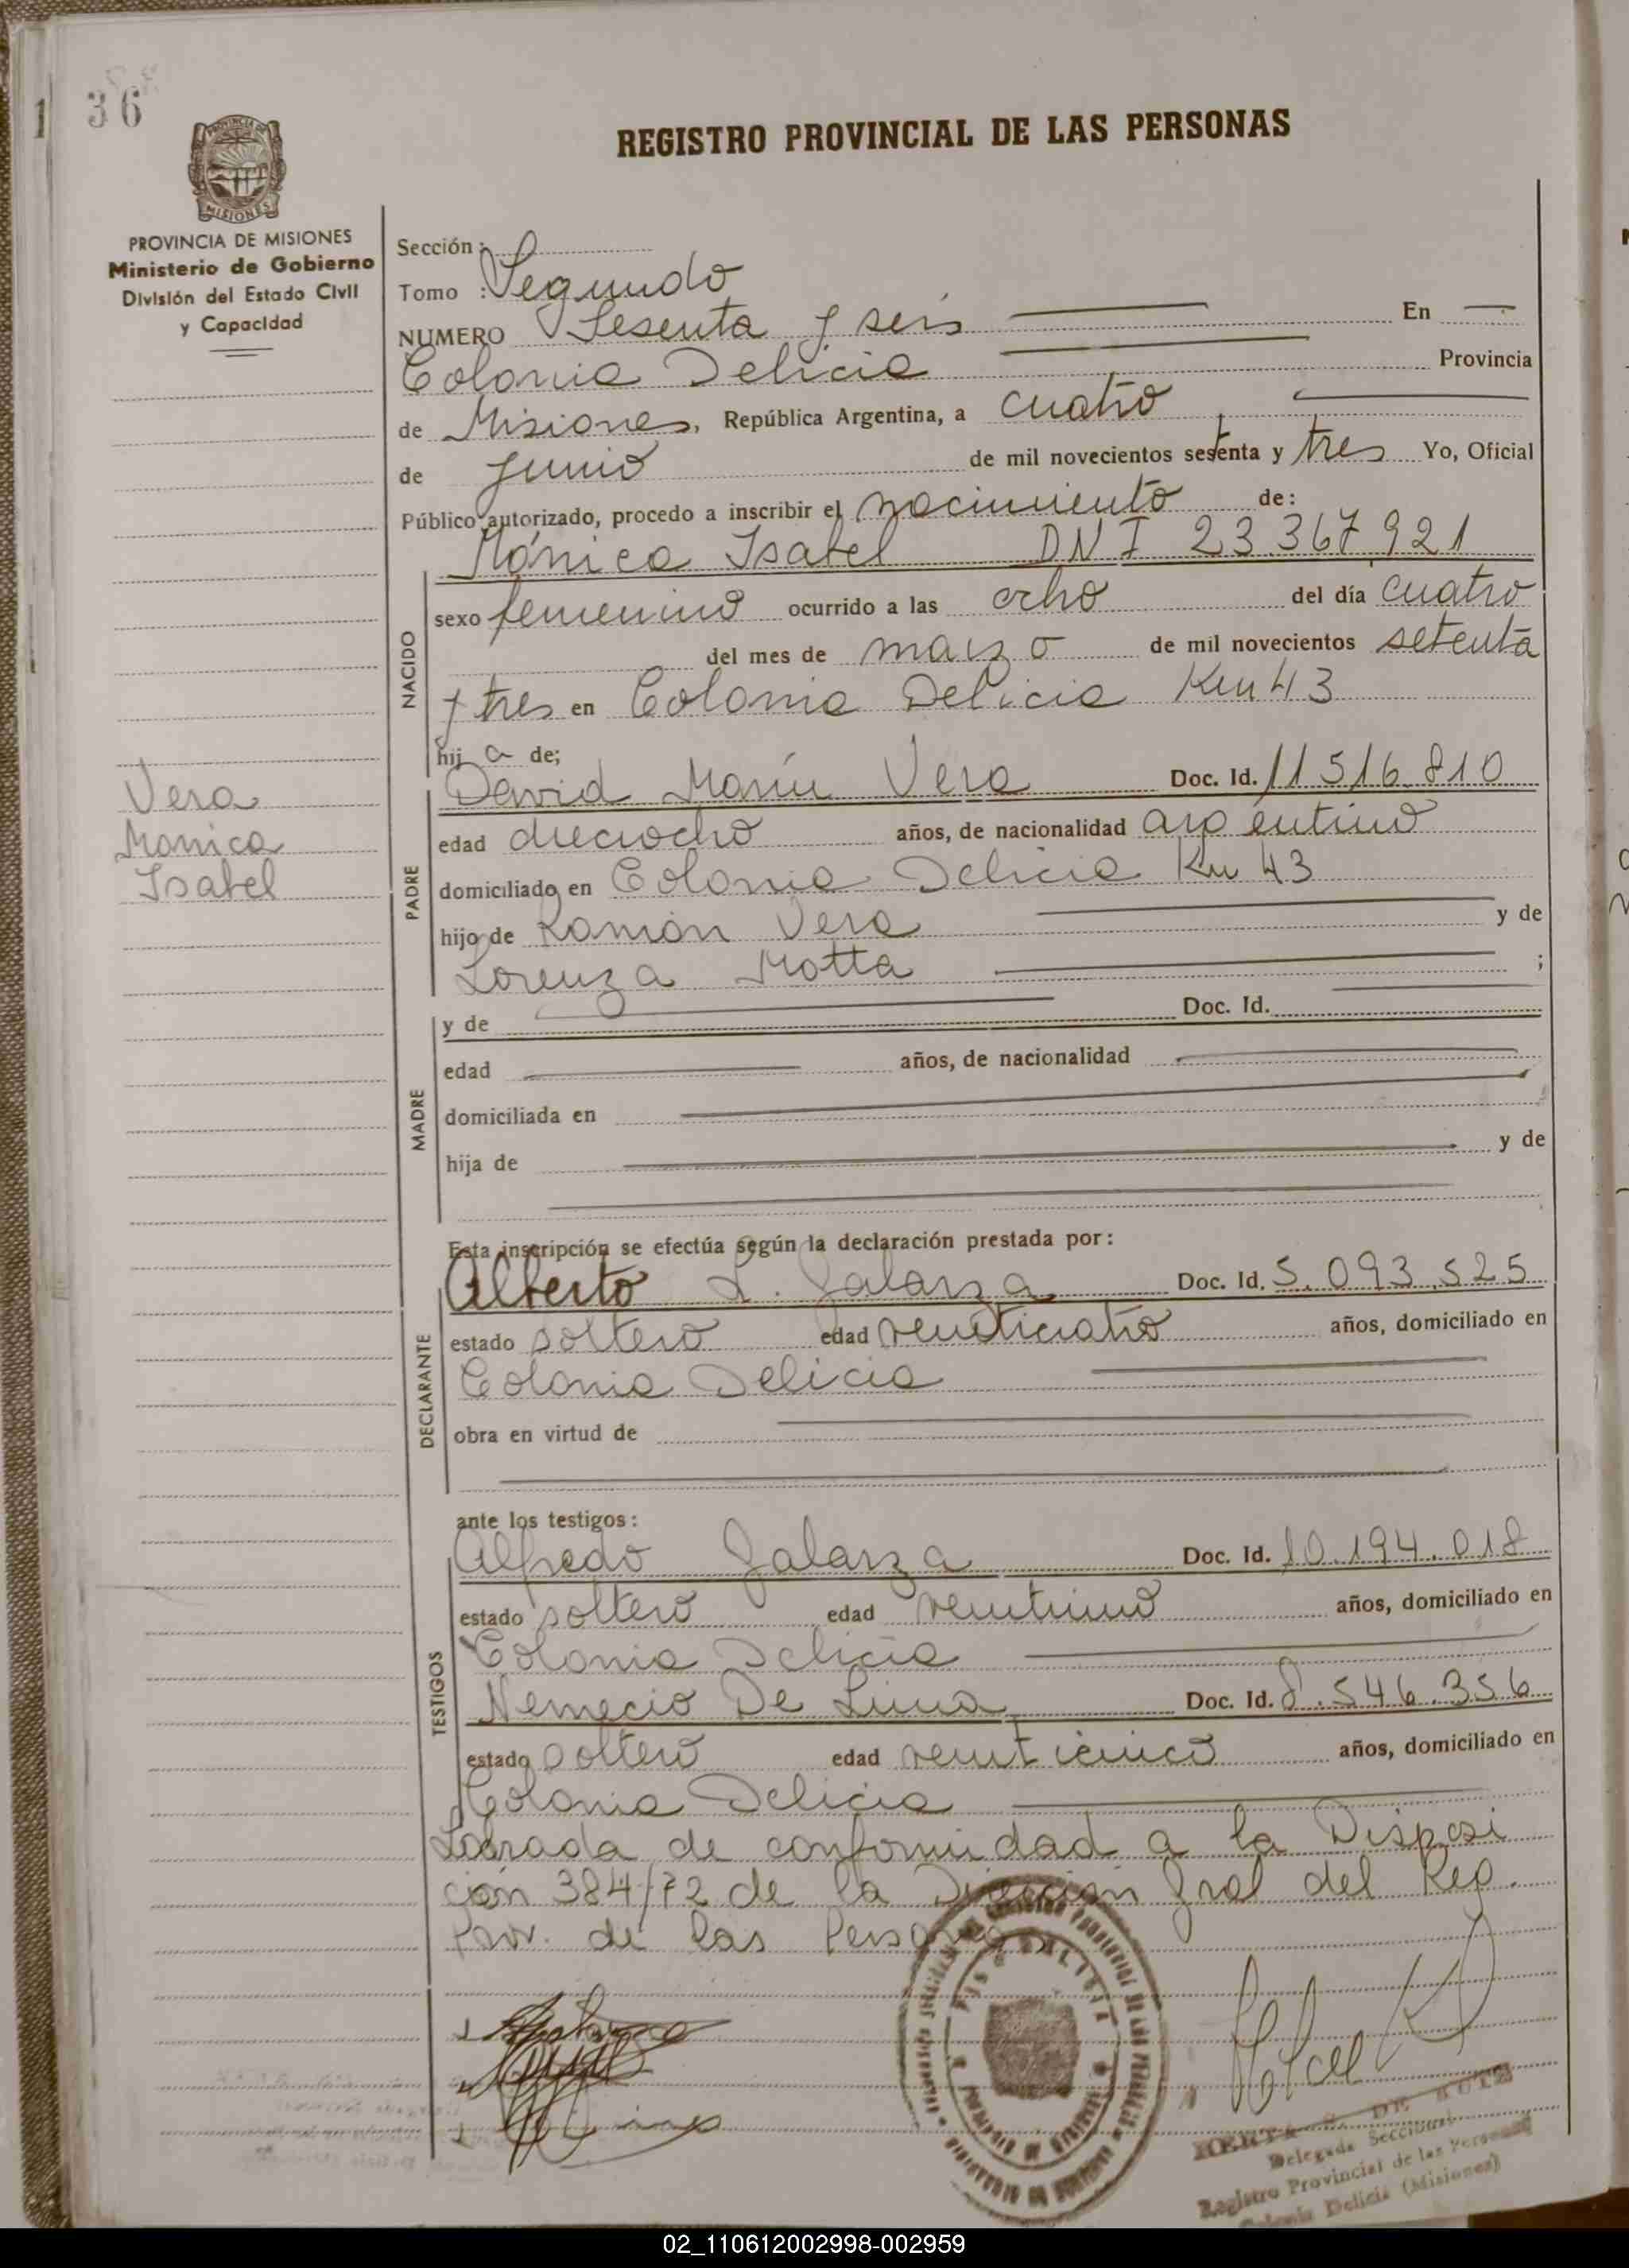 36
REGISTRO PROVINCIAL DE LAS PERSONAS
PROVINCIA DE MISIONES
Ministerio de Gobierno
División del Estado Civil
y Capacidad
Sección:
Tomo : Segundo
NUMERO Sesenta y seis En
Colonia Delicia Provincia
de Misiones, República Argentina, a cuatro
de Junio de mil novecientos setenta y tres Yo, Oficial
Público autorizado, procedo a inscribir el nacimiento de:
Mónica Isabel DNI 23.367.921
NACIDO
sexo femenino ocurrido a las ocho del día cuatro
del mes de marzo de mil novecientos setenta
y tres en Colonia Delicia Km 43
hij a de;
Vera
Monica
Isabel
PADRE
David Vera Doc. Id. 11.516.810
edad dieciocho años, de nacionalidad argentino
domiciliado en Colonia Delicia Km 43
hijo de Ramón Vera y de
Lorenza Motta ;
MADRE
y de Doc. Id.
edad años, de nacionalidad
domiciliada en
hija de y de
Esta inscripción se efectúa según la declaración prestada por:
DECLARANTE
Alberto L. Galarza Doc. Id. 5.093.525
estado soltero edad veinticuatro años, domiciliado en
Colonia Delicia
obra en virtud de
ante los testigos:
TESTIGOS
Alfredo Galarza Doc. Id. 10.194.018
estado soltero edad veintiuno años, domiciliado en
Colonia Delicia
Nemecio De Lima Doc. Id. 8.546.356
estado soltero edad veinticinco años, domiciliado en
Colonia Delicia
Labrada de conformidad a la Disposi
ción 384/72 de la Dirección Gral del Reg.
Prov. de las Personas
Delegada Seccional
Registro Provincial de las Personas
Colonia Delicia (Misiones)
02_110612002998-002959